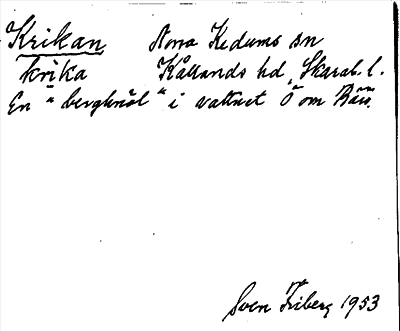 Krikan Norra Kedums sn
krika Kållands hd, Skarab. l.
En "bergknöl" i vattnet Ö om
Sven Friberg 1953